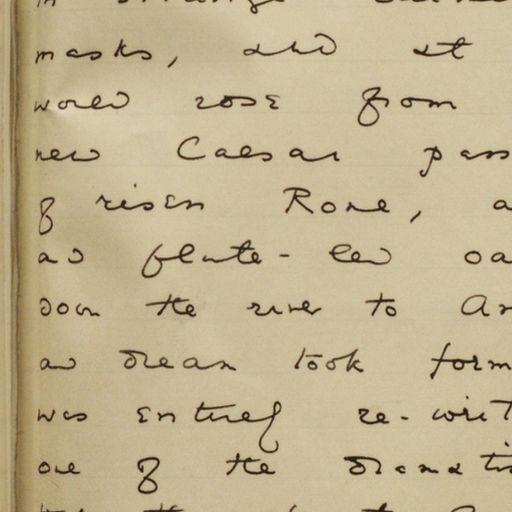 masks, and at
world rose from
new Caesar pass
of risen Rome, a
and flute-led oa
down the river to An
and dream took form
was entirely re-writ
one of the dramatis